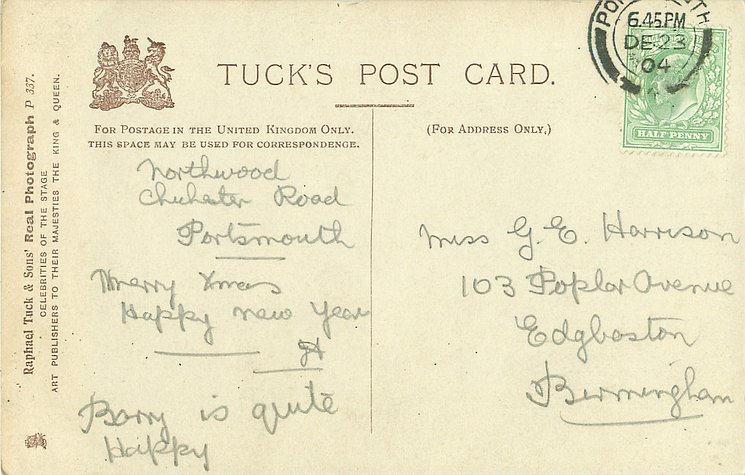 Raphael Tuck & Sons' Real Photograph P 337.
CELEBRITIES OF THE STAGE
ART PUBLISHERS TO THEIR MAJESTIES THE KING & QUEEN.
TUCK'S POST CARD.
FOR POSTAGE IN THE UNITED KINGDOM ONLY.
THIS SPACE MAY BE USED FOR CORRESPONDENCE.
(FOR ADDRESS ONLY,)
6.45PM
DE 23
04
HALF PENNY
Northwood
Chichester Road
Portsmouth
Merry Xmas
Happy new Year
Barry is quite
Happy
Miss G. E. Harrison
103 Poplar Avenue
Edgbaston
Birmingham